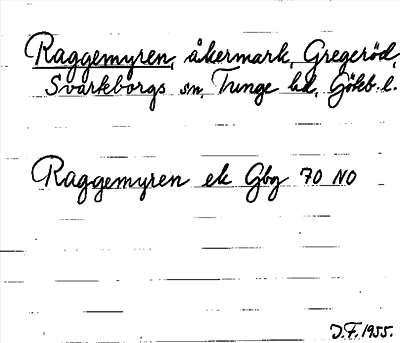 Raggemyren, åkermark, Gregeröd,
Svarteborgs sn, Tunge hd, Göteb. l.
Raggemyren ek Gbg 70 NO
J.F. 1955.